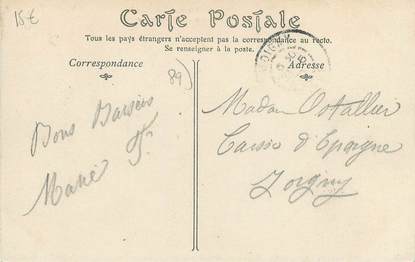 15€
Carte Postale
Tous les pays étrangers n'acceptent pas la correspondance au recto.
Se renseigner à la poste.
Correspondance
Adresse
89)
Bons Baisers
Marie
Madame
Caisse d'Epargne
Joigny